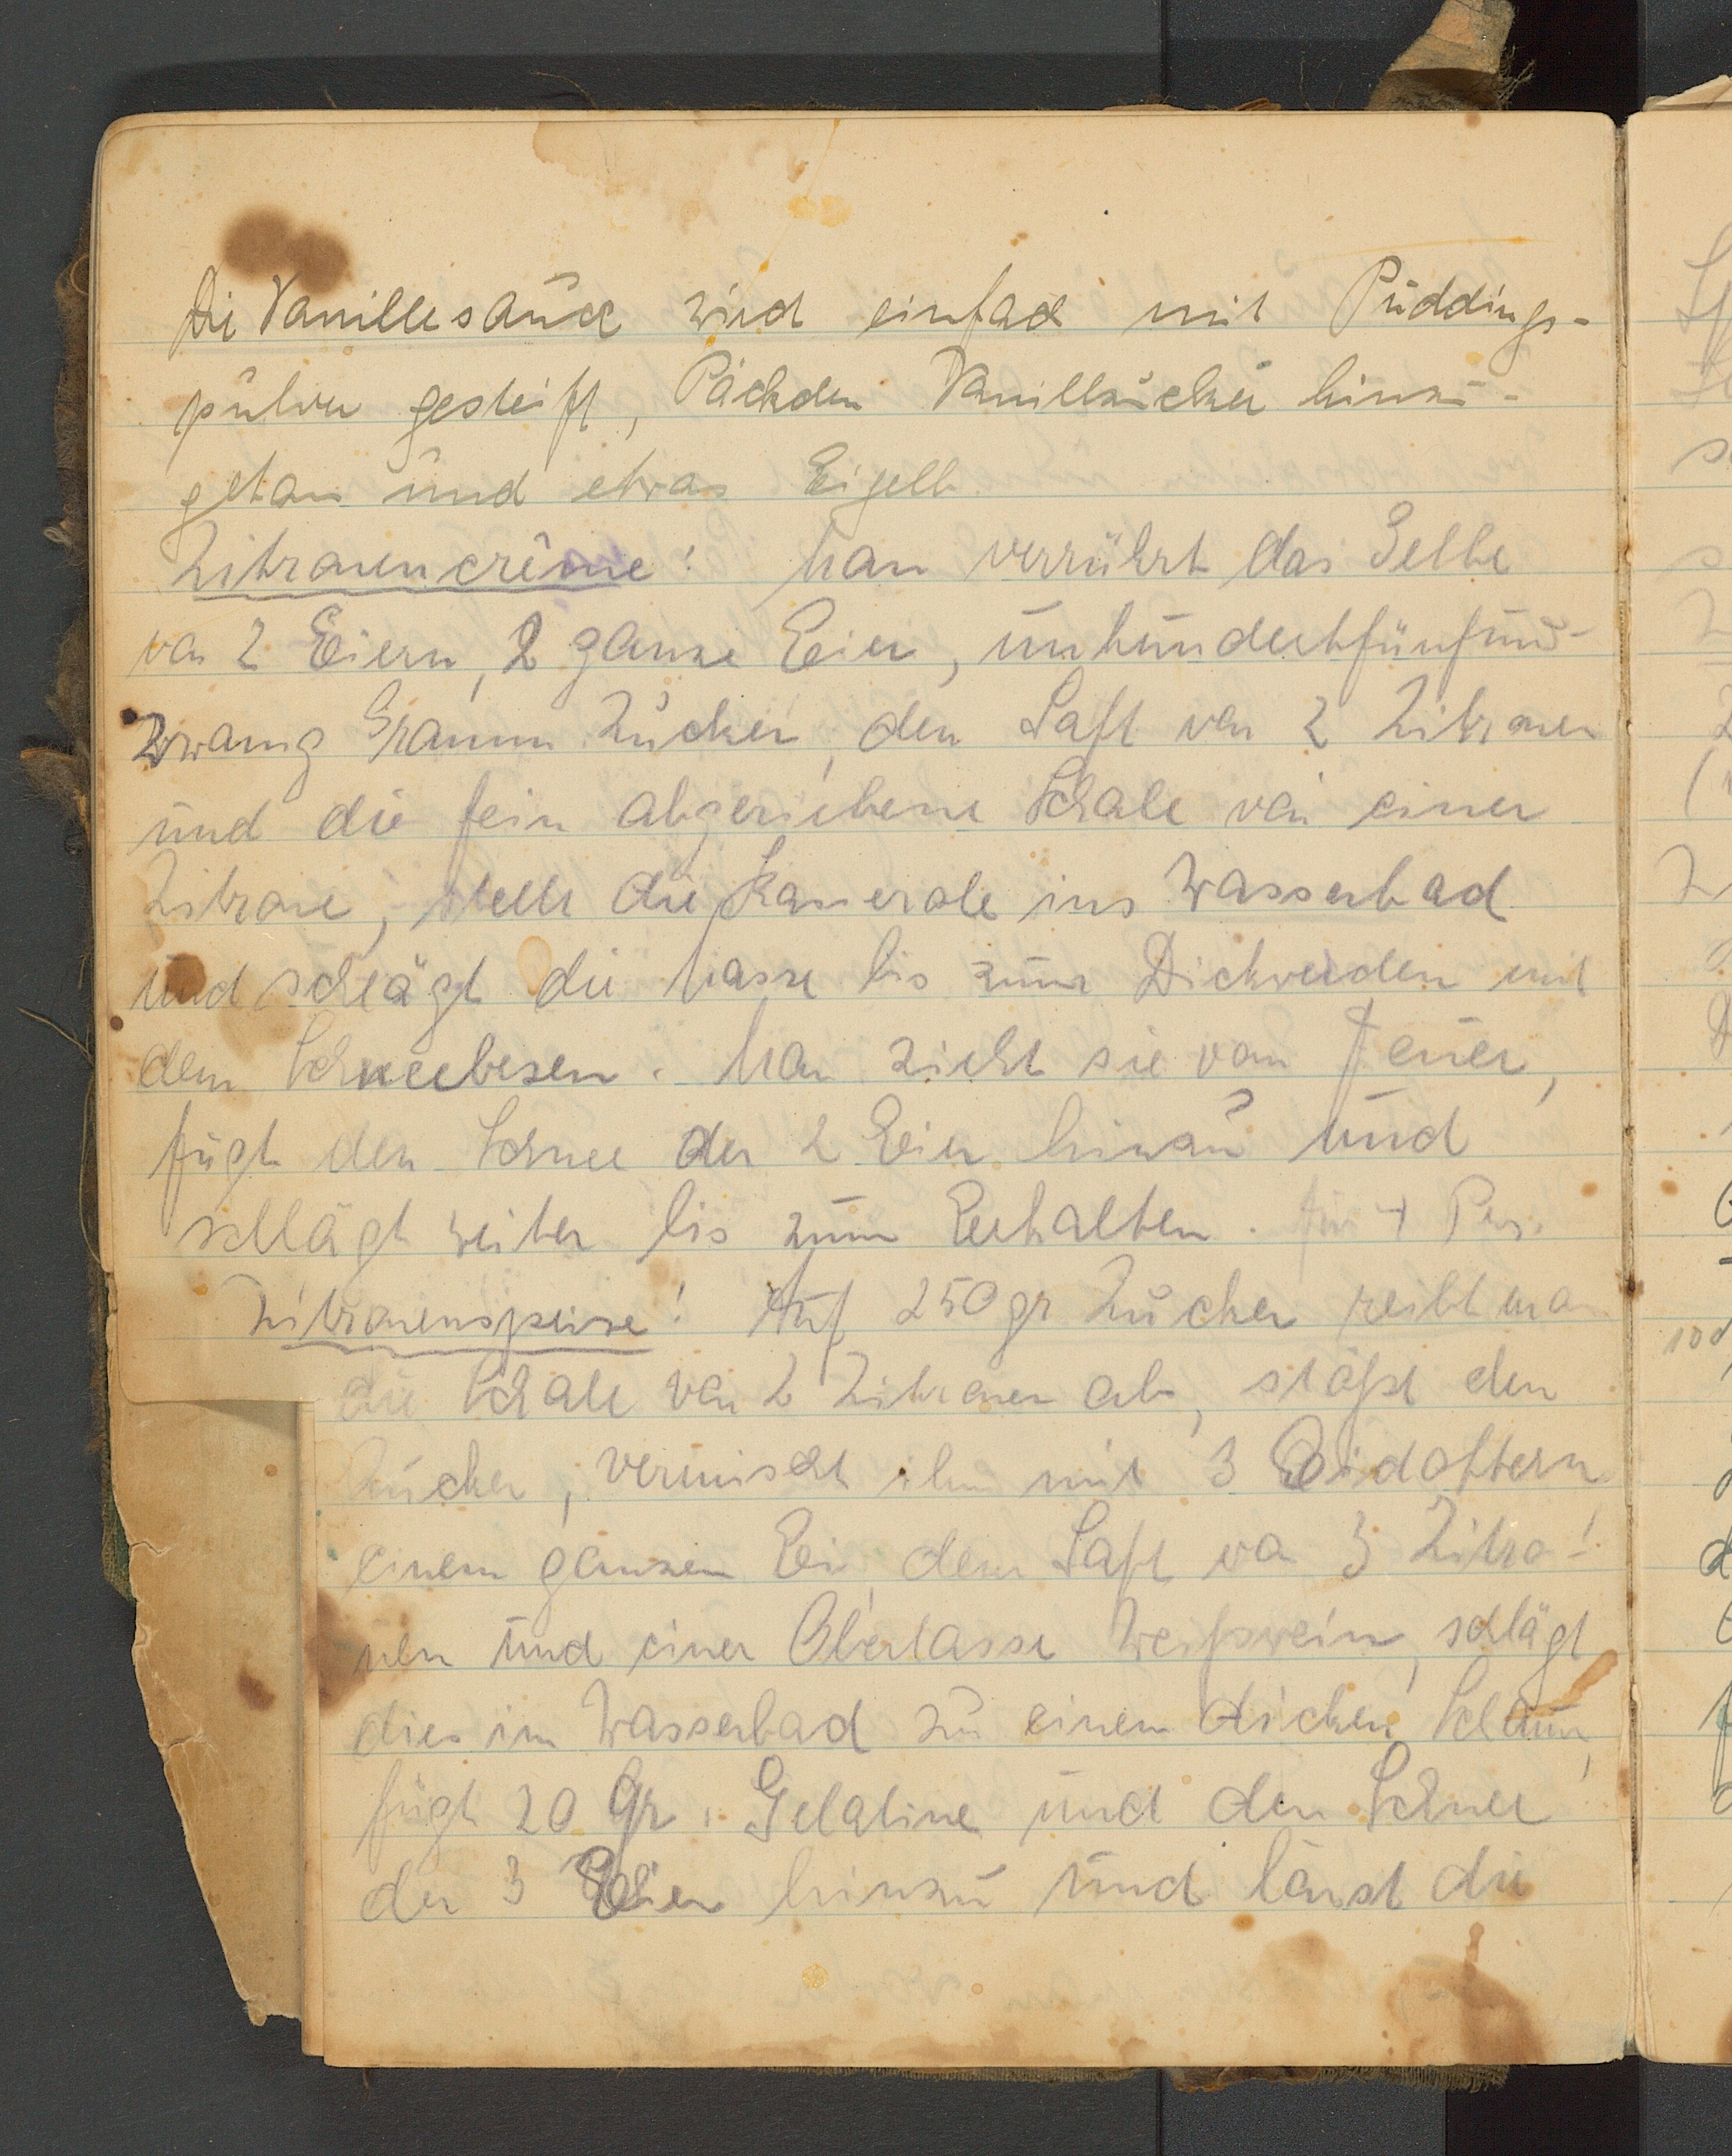 Die Vanillesauce wird einfach mit Puddings-
pulver gesteift, Päckchen Vanillzucker hinzu-
getan und etwas Eigelb
Zitronencrême: Man verrührt das Gelbe
von 2 Eiern, 2 ganze Eier, einhundertfünfund-
zwanzig Gramm Zucker, den Saft von 2 Zitronen
und die fein abgeriebene Schale von einer
Zitrone, stelle die Kasserole ins Wasserbad
und schlägt die Masse bis zum Dickwerden mit
dem Schneebesen. Man zieht sie vom Feuer,
fügt den Schnee der 2 Eier hinzu und
schlägt weiter bis zum Erkalten. für 4 Pers.
Zitronenspeise! Auf 250 gr Zucker reibt man
die Schale von 2 Zitronen ab, stößt den
Zucker, vermischt ihn mit 3 Eidottern
einem ganzen Ei, dem Saft von 3 Zitro-
nen und einer Obertasse Weißwein, schlägt
dies im Wasserbad zu einem dicken Schaum,
fügt 20 Gr. Gelatine und den Schnee
der 3 Eier hinzu und lässt die